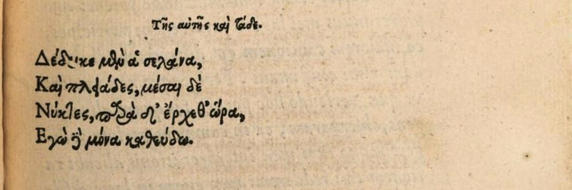 Τῆς αὐτῆς καὶ τάδε.
Δέδυκε μὲν ἁ σελάνα,
Καὶ πληϊάδες, μέσαι δὲ
Νύκτες, παρὰ δ' ἔρχεθ' ὥρα,
Ἐγὼ δὲ μόνα καθεύδω.